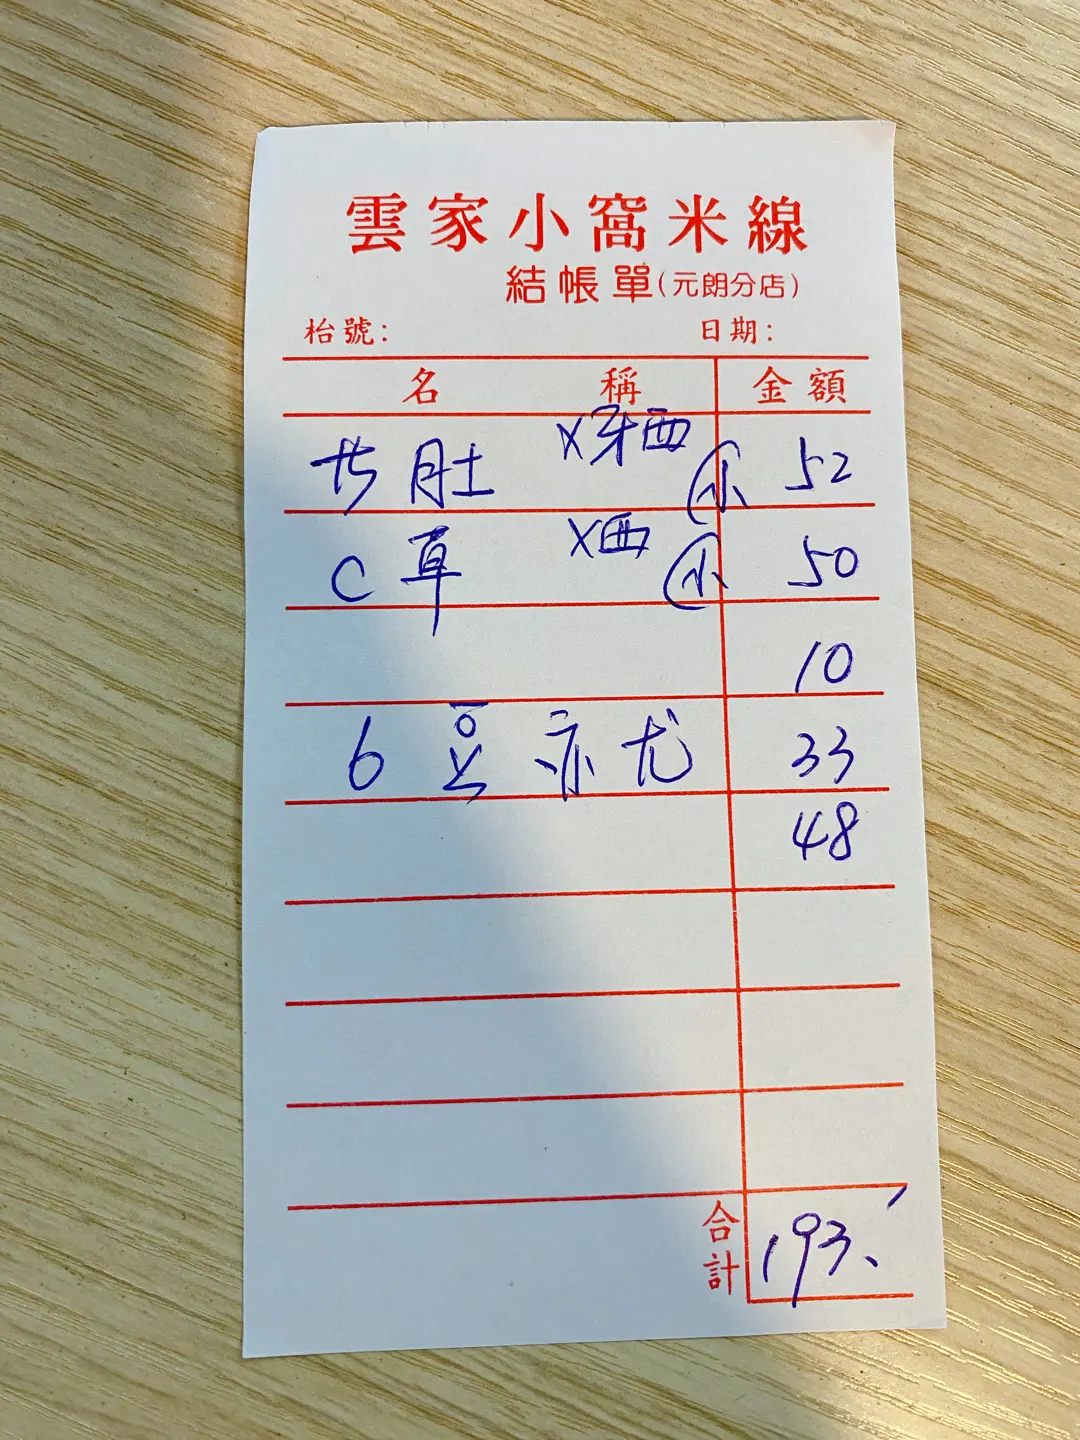 雲家小窩米線
結帳單(元朗分店)
枱號: 日期:
名稱 金額
肚 X牙西 小 52
C 車 X西 小 50
10
6 豆 亦 尤 33
48
合計 193